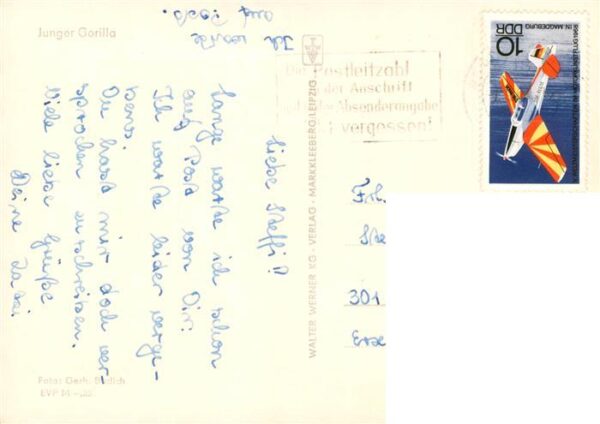 Junger Gorilla
Liebe Steffi!
Lange warte ich schon
auf Post von Dir.
Ich warte leider verge-
bens.
Du hast mir doch ver-
sprochen zu schreiben.
Viele liebe Grüße
Deine
Ich warte
auf Post.
Foto: Gerh. Budich
EVP M
WALTER WERNER KG · VERLAG · MARKKLEEBERG/LEIPZIG
Die Postleitzahl
der Anschrift
der Absenderangabe
vergessen!
10
DDR
IN MAGDEBURG
1968
Frl.
301